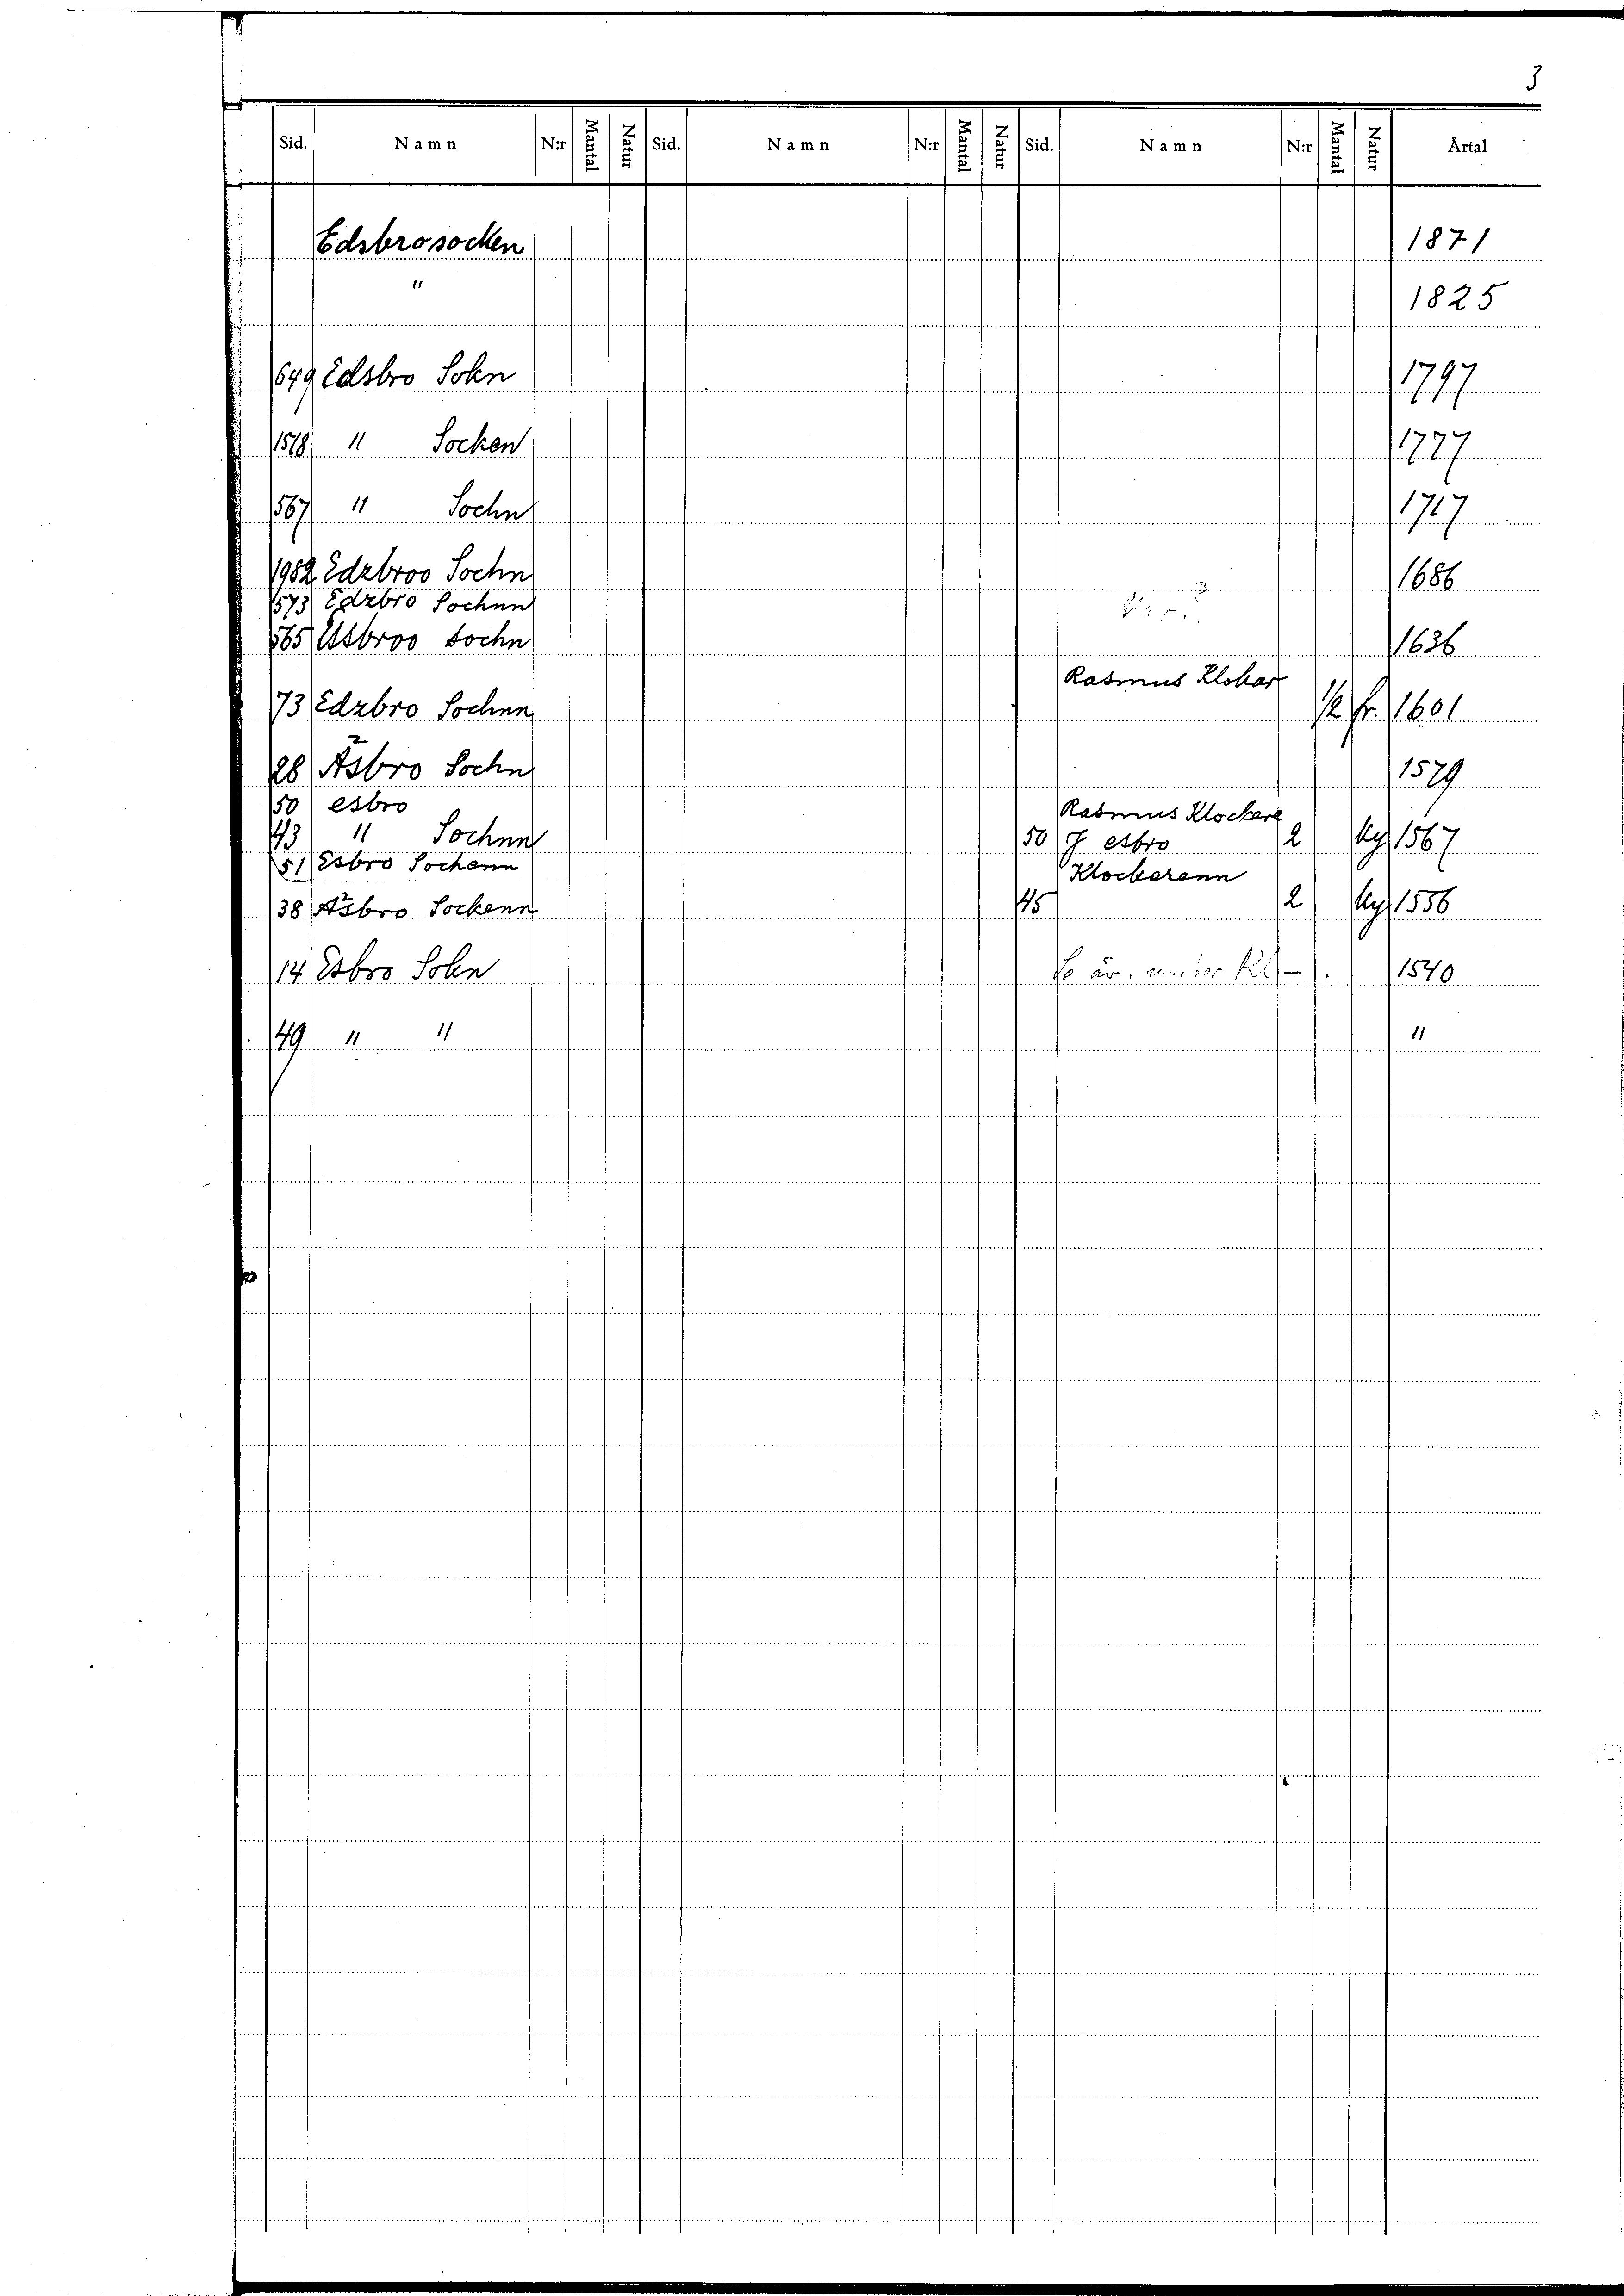 3
Sid. Namn N:r Mantal Natur Sid. Namn N:r Mantal Natur Sid. Namn N:r Mantal Natur Årtal
Edsbrosocken 1871
" 1825
649 Edsbro Sokn 1797
1518 " Socken 1777
567 " Sochn 1717
1982 Edzbroo Sochn 1686
573 Edzbro Sochnn
565 Esbroo Sochn 1636
Rasmus Klokar
73 Edzbro Sochnn 1/2 fr. 1601
28 Åsbro Sochn 1579
50 esbro Rasmus Klockere
43 " Sochnn 50 J esbro 2 ky 1567
51 Esbro Sochenn Klockarenn
38 Åsbro Sockenn 45 2 ky 1556
14 Esbro Sokn Se äv. under Kl 1540
49 " " "